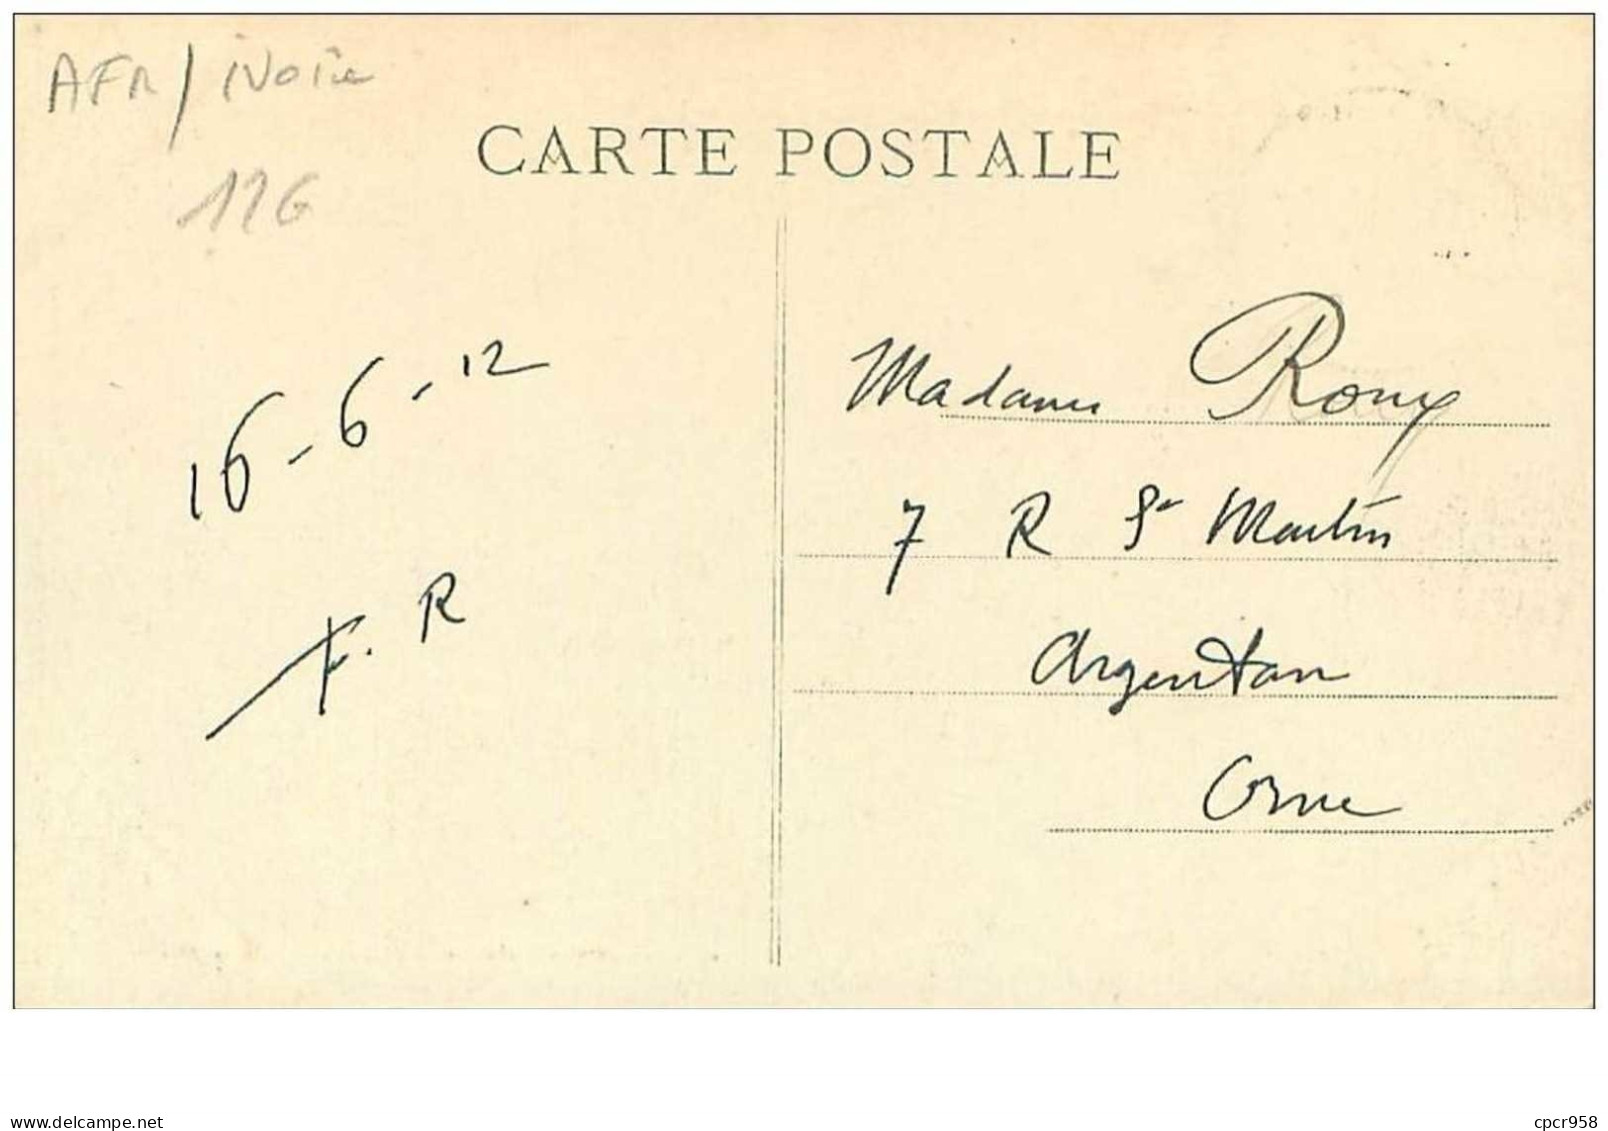 AFR / IVOIRE
126
CARTE POSTALE
16-6-12
F. R
Madame Roux
7 R St Martin
Argentan
Orne
www.delcampe.net
cpcr958